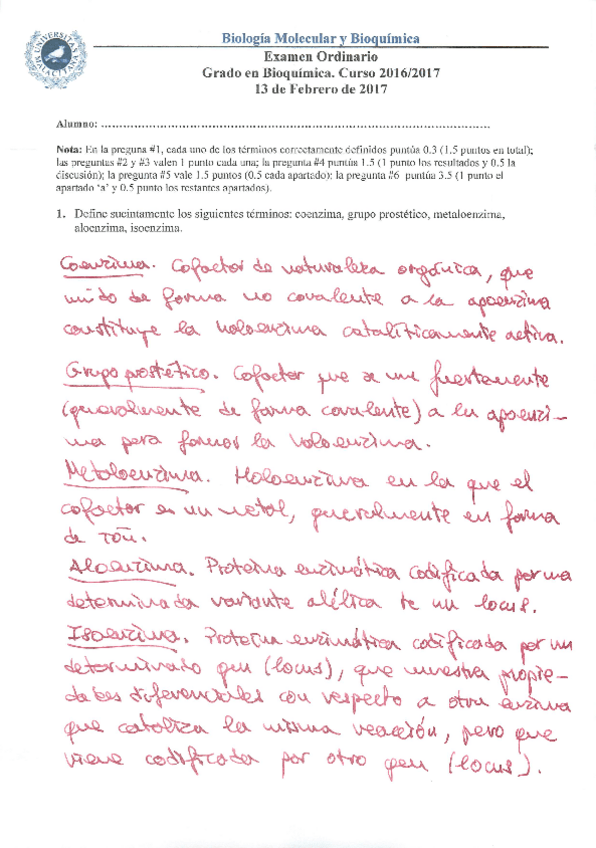 Biología Molecular y Bioquímica
Examen Ordinario
Grado en Bioquímica. Curso 2016/2017
13 de Febrero de 2017
UNIVERSITAS MALACITANA
Alumno: ................................................................................
Nota: En la preguna #1, cada uno de los términos correctamente definidos puntúa 0.3 (1.5 puntos en total);
las preguntas #2 y #3 valen 1 punto cada una; la pregunta #4 puntúa 1.5 (1 punto los resultados y 0.5 la
discusión); la pregunta #5 vale 1.5 puntos (0.5 cada apartado); la pregunta #6 puntúa 3.5 (1 punto el
apartado ‘a’ y 0.5 punto los restantes apartados).
1. Define sucintamente los siguientes términos: coenzima, grupo prostético, metaloenzima,
aloenzima, isoenzima.
Coenzima. Cofactor de naturaleza orgánica, que
unido de forma no covalente a la apoenzima
constituye la holoenzima catalíticamente activa.
Grupo prostético. Cofactor que se une fuertemente
(generalmente de forma covalente) a la apoenzi-
ma para formar la holoenzima.
Metaloenzima. Holoenzima en la que el
cofactor es un metal, generalmente en forma
de ion.
Aloenzima. Proteína enzimática codificada por una
determinada variante alélica de un locus.
Isoenzima. Proteína enzimática codificada por un
determinado gen (locus), que muestra propie-
dades diferenciales con respecto a otra enzima
que cataliza la misma reacción, pero que
viene codificada por otro gen (locus).